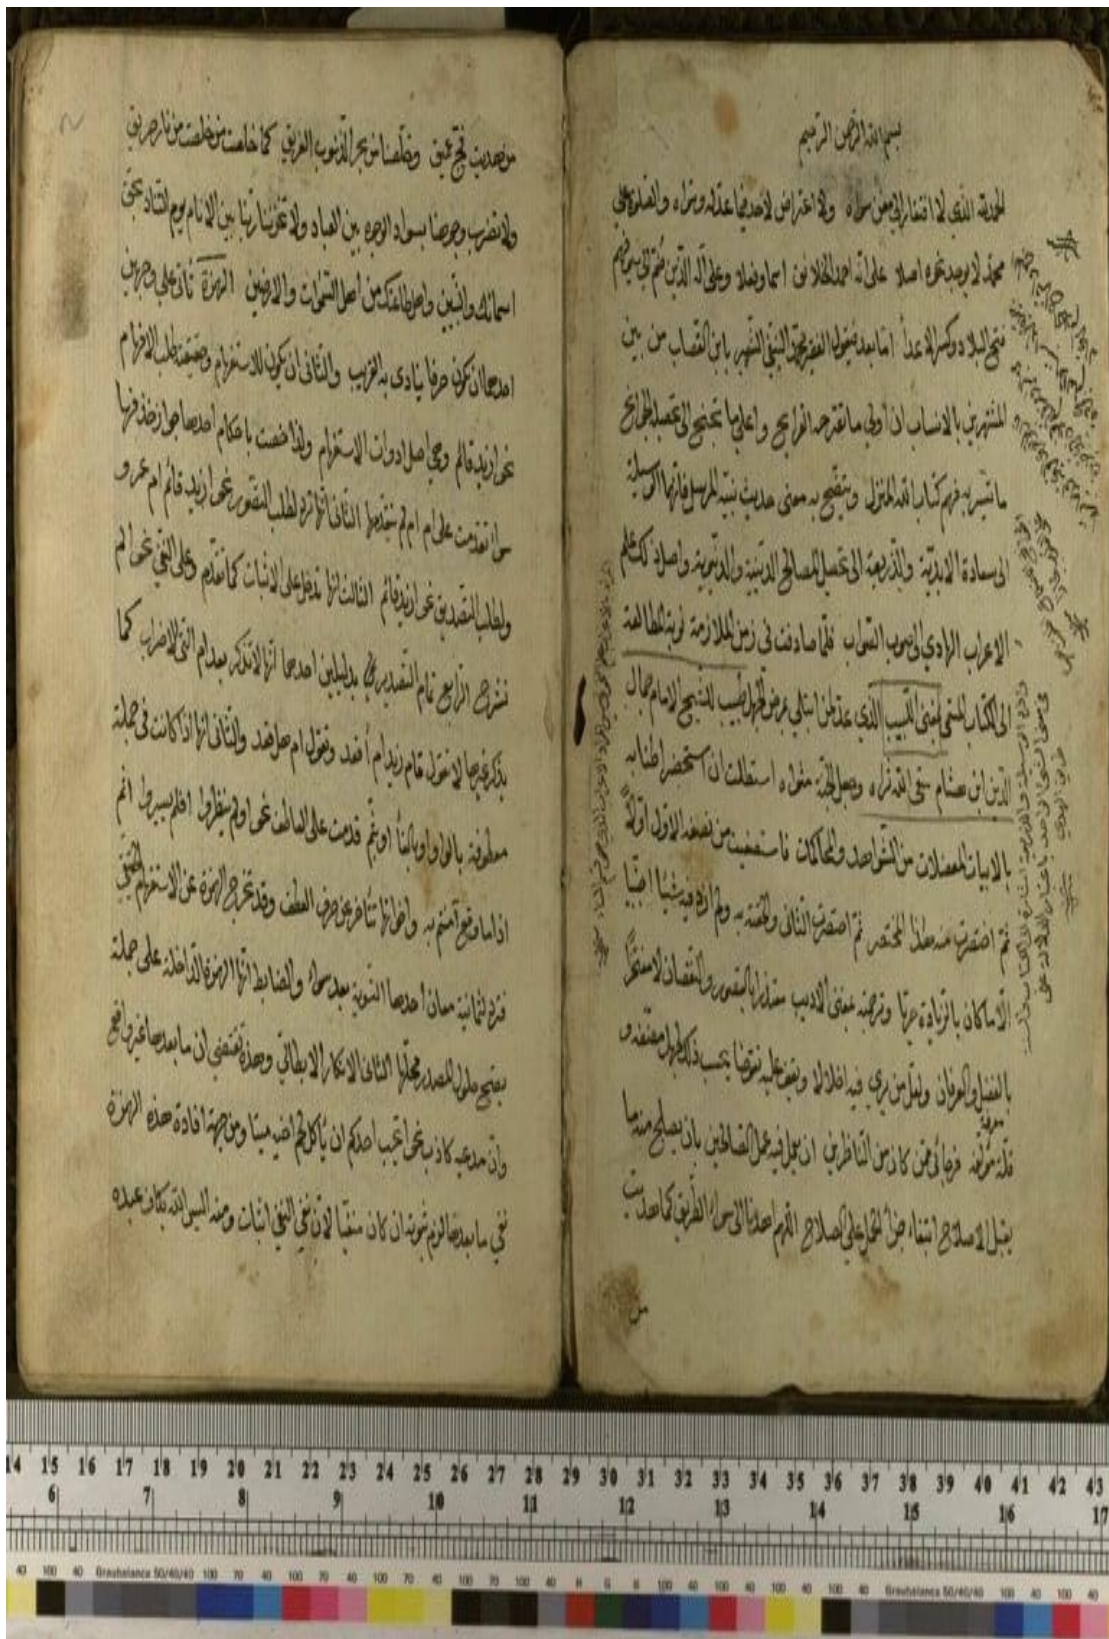 بسم الله الرحمن الرحيم
الحمد لله الذي لا افتقار الى معين سواه ولا اعتراض لاحد فيما عدله وسواه والصلوة على
محمد لا يوجد نحوه اصلا على انه احمد الخلائق اسما وفعلا وعلى آله الذين
فتح البلاد وكسر الاعدأ اما بعد فيقول الفقير محمد النبي الشهير بابن القصاب من بين
المشتهرين بالانساب ان اولى ما تقترحه القرايح واعلى ما تجنح الى تحصيله الجوانح
ما تيسر به فهم كتاب الله المنزل ويتضح به معنى حديث نبيه المرسل فانهما الوسيلة
الى سعادة الابدية والذريعة الى تحصيل المصالح الدينية والدنيوية واصل ذلك علم
الاعراب الهادي الى صوب الصواب فلما صادفت في زمن الملازمة نوبة المطالعة
الى الكتاب المسمى بمغنى اللبيب الذي عد لمن ابتلي بمرض الجهل طبيب للشيخ الامام جمال
الدين ابن هشام سقى الله ثراه وجعل الجنة مثواه استطلت ان استحضر اطنابه
بالابيات المعضلات من الشواهد والمحاكمات فاستصفيت من نصفه الاول اولا
ثم اختصرت منه هذا المختصر ثم اختصرت الثاني والحقته به ولم ازد فيه شيئا اجنبيا
الا ما كان بالزيادة حريا وترجمته بمغنى الاديب معتذرا بالقصور والنقصان لا مفتخرا
بالفضل والعرفان ولعل من يرى فيه اخلالا ويقف عليه نقصا يحسب ذلك لجهل مصنفه و
قلة معرفة مؤلفه فرجائى ممن كان من الناظرين ان يعمل فيه عمل الصالحين بان يصلح منه ما
يقبل الاصلاح ابتغاء على الصلاح اللهم اهدنا الى سواء الطريق كما هديت
من
من هديت فج عميق وخلصنا من بحر الذنوب الغريق كما خلصت من خلصت من نار حريق
ولا تضرب وجوهنا بسواد الوجوه بين العباد ولا تخزنا ربنا بين الانام يوم التناد بحق
اسمائك والنبيين واهل طاعتك من اهل السموات والارضين الهمزة تأتى على وجهين
احدهما ان تكون حرفا ينادى به القريب والثانى ان يكون للاستفهام وحقيقته طلب الافهام
نحو ازيد قائم وهي اصل ادوات الاستفهام ولذا خصت باحكام احدها جواز حذفها
سواء تقدمت على ام ام لم تتقدمها الثانى انها ترد لطلب التصور نحو ازيد قائم ام عمرو
ولطلب التصديق نحو ازيد قائم الثالث انها تدخل على الاثبات كما تقدم وعلى النفى نحو الم
نشرح الرابع تمام التصدير بدليلين احدهما انها لا تذكر بعد ام التى للاضراب كما
يذكر غيرها لا تقول قام زيد ام أقعد وتقول ام هل قعد والثانى انها اذا كانت في جملة
معطوفة بالواو او بالفأ او بثم قدمت على العاطف نحو اولم ينظروا افلم يسيروا اثم
اذا ما وقع آمنتم به واخواتها تتأخر عن حرف العطف وقد تخرج الهمزة عن الاستفهام الحقيقى
فترد لثمانية معان احدها التسوية بعد سواء والضابط انها الهمزة الداخلة على جملة
يصح حلول المصدر محلها الثانى الانكار الابطالي وهذه تقتضى ان ما بعدها غير واقع
وان مدعيه كاذب نحو ايحب احدكم ان يأكل لحم اخيه ميتا ومن جهة افادة هذه الهمزة
نفي ما بعدها لزم ثبوته ان كان منفيا لان نفي النفي اثبات ومنه اليس الله بكاف عبده